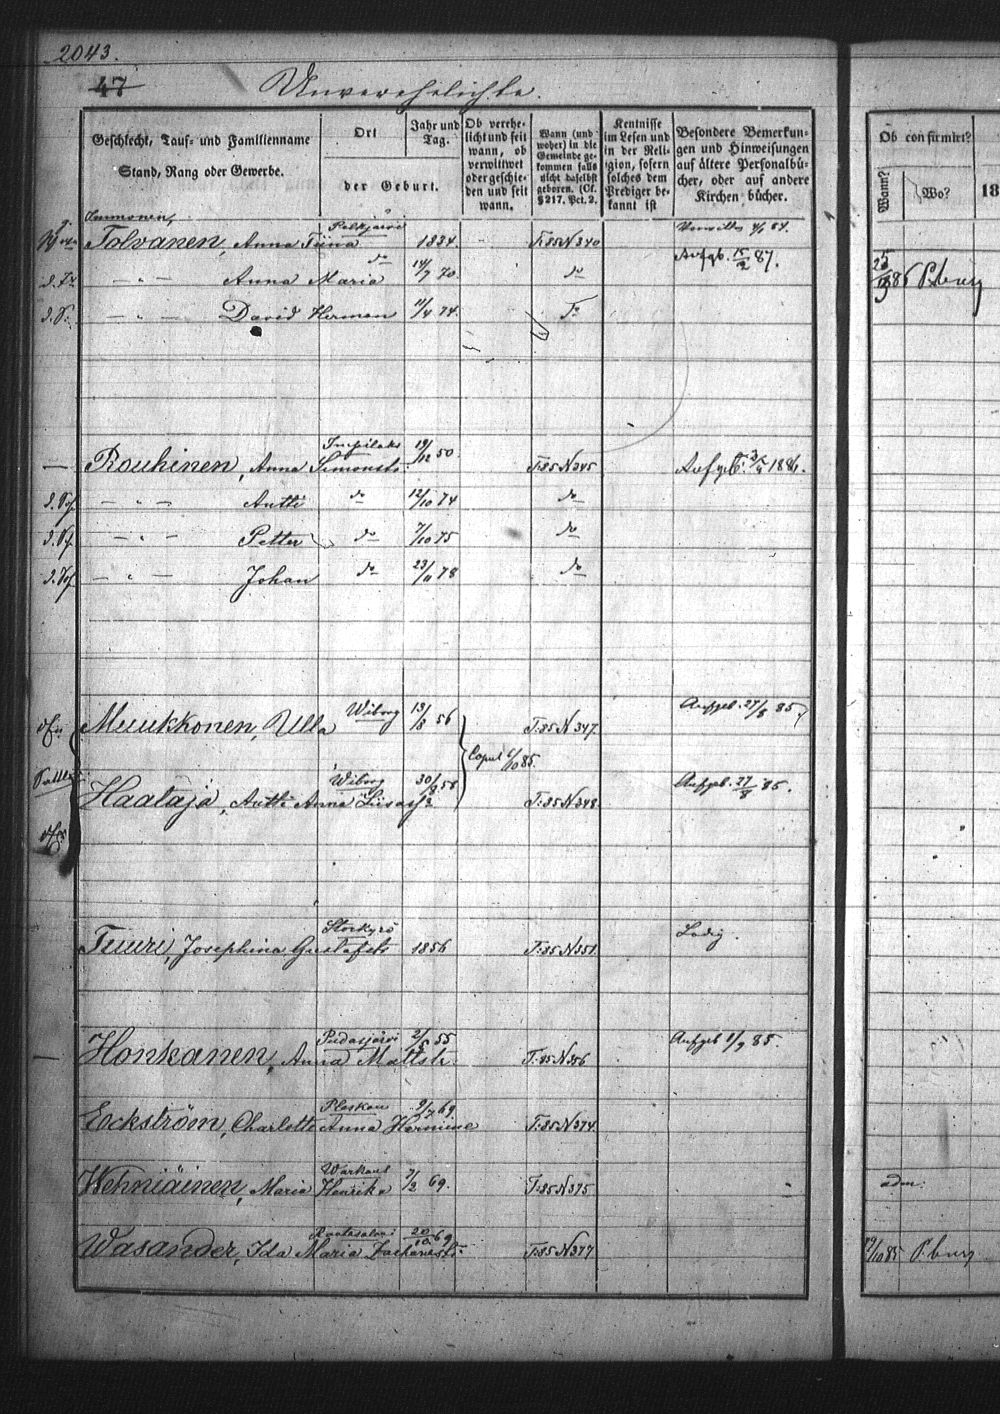 2043.
47
Unverehelichte.
Geschlecht, Tauf- und Familienname
Stand, Rang oder Gewerbe.
Ort
Jahr und Tag.
der Geburt.
Ob verehe-
licht und seit
wann, ob
verwittwet
oder geschie-
den und seit
wann.
Wann (und
woher) in die
Gemeinde ge-
kommen falls
nicht daselbst
geboren. (Cf.
§ 217. Pct. 2.
Kentnisse
im Lesen und
in der Reli-
gion, sofern
solches dem
Prediger be-
kannt ist
Besondere Bemerkun-
gen und Hinweisungen
auf ältere Personalbü-
cher, oder auf andere
Kirchenbücher.
Ob confirmirt?
Wann?
Wo?
18
Immonen,
Tolvanen, Anna Tiina Pelkjärvi 1834. T:85 N 340
" Anna Maria do 14/7 70. do Aufgb. 15/2 87. 1886 P.burg
" David Herman 11/4 74.
Rouhinen, Anna Simonstr. Impilaks 19/12 50 T:85 N 345 Aufgeb. 1886.
" Antti do 12/10 74 do
" Petter do 7/10 75 do
" Johan do 23/11 78 do
Muukkonen, Ulla Wiborg 13/8 56 T:85 N 347. Aufgeb. 27/8 85
Copul. 6/10 85.
Haataja, Antti Anna Liisas Wiborg 30/9 58 T:85 N 348. Aufgeb. 27/8 85.
Tuuri, Josephina Gustafstr Storkyrö 1856 T:85 N 351. Ledig.
Honkanen, Anna Mattstr. Pudasjärvi 2/5 55 T:85 N 356 Aufgeb 1/9 85.
Eckström, Charlotte Anna Hermine Pleskau 9/7 69 T:85 N 374.
Wehniäinen, Maria Henrika Warkaus 7/2 69. T:85 N 375 adm:
Wasander, Ida Maria Zachariastr. Rautasalmi 20/10 69 T:85 N 377 19/10 85 P.burg